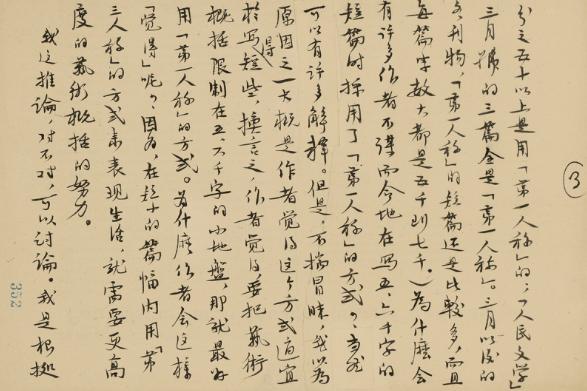 ③
分之五十以上是用「第一人称」的；「人民文学」
三月号的三篇全是「第一人称」。三月以后的
多刊物，「第一人称」的短篇还是比较多，而且
每篇字数大都是五千到七千。）为什么会
有许多作者不谋而合地在写五、六千字的
短篇时採用了「第一人称」的方式？当然
可以有许多解释。但是，不揣冒昧，我以为
原因之一大概是作者觉得这个方式适宜
於写得短些，换言之，作者觉得要把艺术
概括限制在五、六千字的小地盘，那就最好
用「第一人称」的方式。为什么作者会这样
「觉得」呢？因为，在短小的篇幅内用「第
三人称」的方式来表现生活，就需要更高
度的艺术概括的努力。
我这推论，对不对，可以讨论。我是根据
352